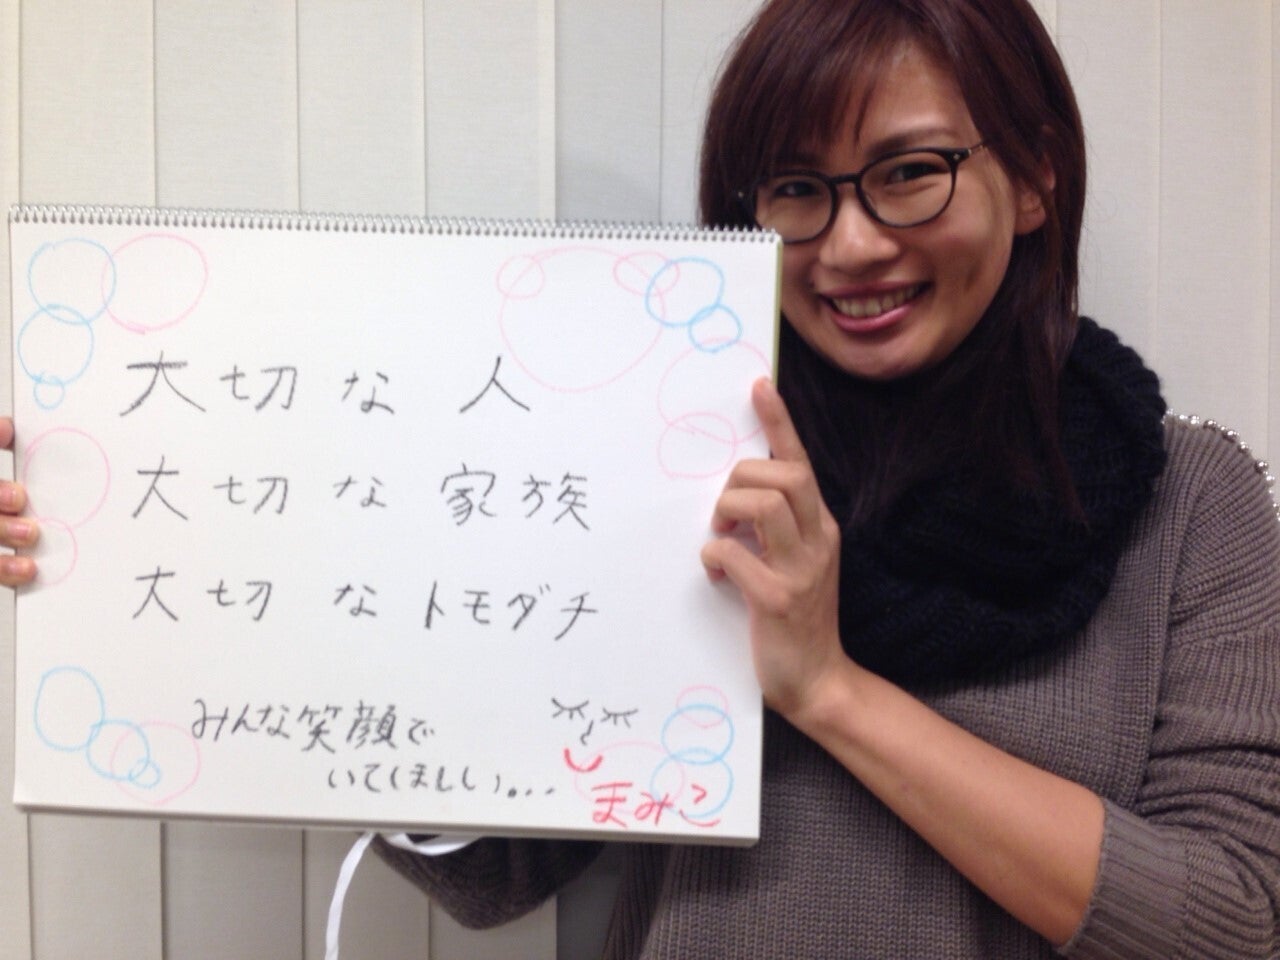 大切な人
大切な家族
大切なトモダチ
みんな笑顔で
いてほしい。...
まみこ